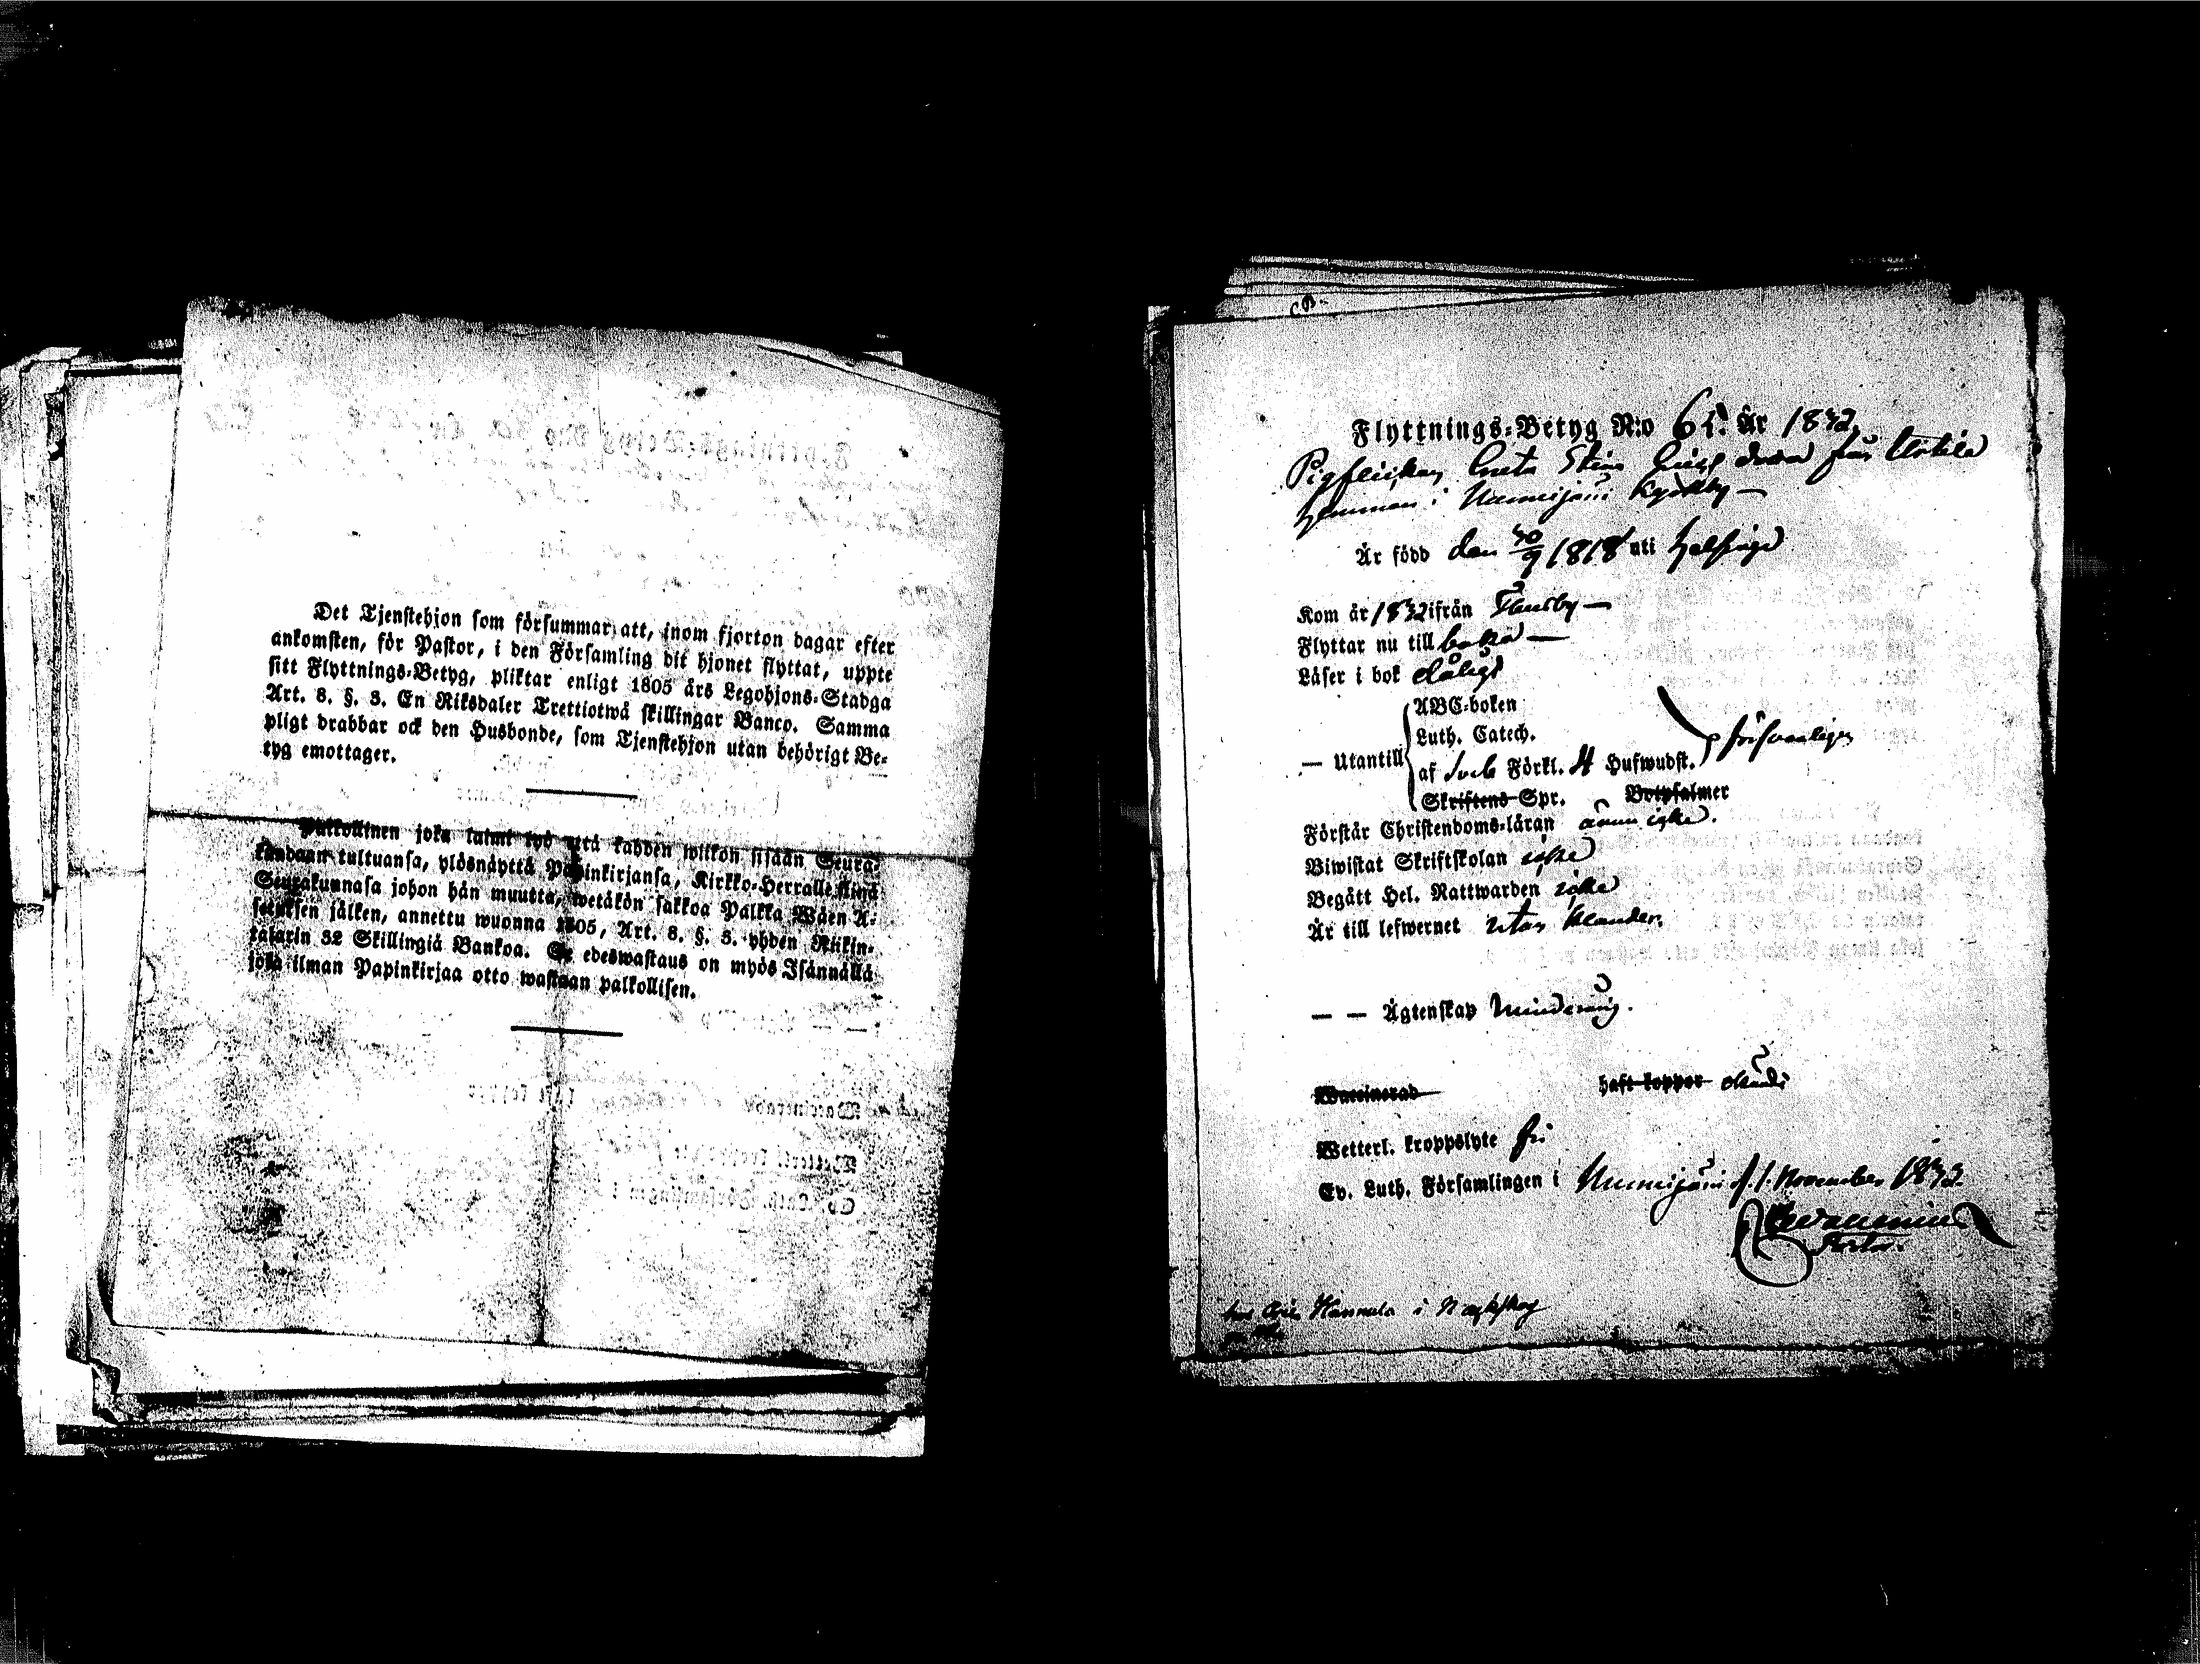 Det Tjenstehjon som försummar att, inom fjorton dagar efter
ankomsten, för Pastor, i den Församling dit hjonet flyttat, uppte
sitt Flyttnings-Betyg, pliktar enligt 1805 års Legohjons-Stadga
Art. 8. §. 3. En Riksdaler Trettiotwå skillingar Banco. Samma
pligt drabbar ock den Husbonde, som Tjenstehjon utan behörigt Be-
tyg emottager.
Palkollinen joka laimi lyö että kahden wiikon sisään Seura-
kundaan tultuansa, ylösnäyttä Papinkirjansa, Kirkko-Herralle siinä
Seurakunnasa johon hän muutta, wetäkön sakkoa Palkka Wäen A-
setuksen jälken, annettu wuonna 1805, Art. 8. §. 3. yhden Riikin-
talarin 32 Skillingiä Bankoa. Se edeswastaus on myös Isännällä
joka ilman Papinkirjaa otto wastaan palkollisen.
Flyttnings-Betyg N:o 61. År 1832
Pigflickan Greta Stina från
hemman i Nummijärvi
Är född den 9 1818 uti Helsinge
Kom år 1832 ifrån
Flyttar nu till
Läser i bok dåligt
ABC-boken
Luth. Catech. försvarligen
— Utantill af Förkl. 4 Hufwudst.
Skriftens Spr. Botpsalmer
Förstår Christendoms-läran ännu icke.
Biwistat Skriftskolan icke
Begått Hel. Nattwarden icke
Är till lefwernet utan klander.
— — Ägtenskap minderårig.
Waccinerad haft koppor
Wetterl. kroppslyte fri
Ev. Luth. Församlingen i d. 1. November 1832.
Pastor.
hos Hannula i